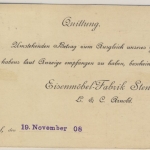 Quittung.
Umstehenden Betrag zum Ausgleich unserer
haben laut Anzeige empfangen zu haben, beschein
Eisenmöbel-Fabrik
L. & C. Arnold.
den 19. November 08